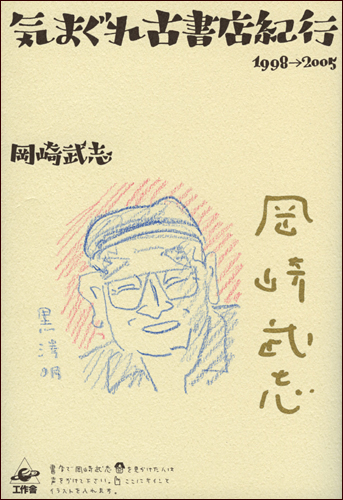 気まぐれ古書店紀行
1998→2005
岡崎武志
岡崎武志
黒澤明
工作舎
書店で岡崎武志を見かけた人は
声をかけて下さい。ここにサインと
イラストを入れます。